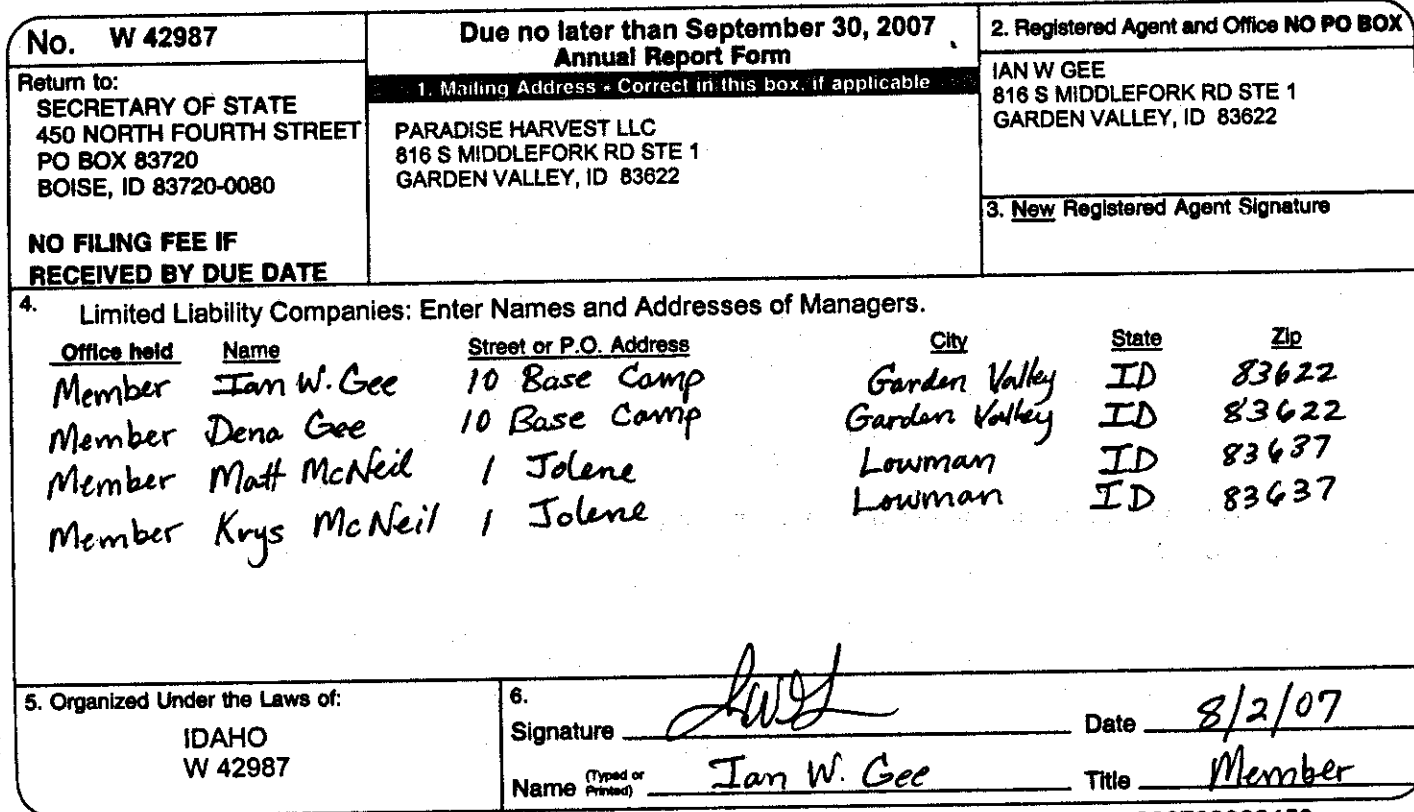 No. W 42987
Return to:
SECRETARY OF STATE
450 NORTH FOURTH STREET
PO BOX 83720
BOISE, ID 83720-0080
NO FILING FEE IF
RECEIVED BY DUE DATE
Due no later than September 30, 2007
Annual Report Form
1. Mailing Address - Correct in this box, if applicable
PARADISE HARVEST LLC
816 S MIDDLEFORK RD STE 1
GARDEN VALLEY, ID 83622
2. Registered Agent and Office NO PO BOX
IAN W GEE
816 S MIDDLEFORK RD STE 1
GARDEN VALLEY, ID 83622
3. New Registered Agent Signature
4. Limited Liability Companies: Enter Names and Addresses of Managers.
Office held Name Street or P.O. Address City State Zip
Member Ian W. Gee 10 Base Camp Garden Valley ID 83622
Member Dena Gee 10 Base Camp Garden Valley ID 83622
Member Matt McNeil 1 Jolene Lowman ID 83637
Member Krys McNeil 1 Jolene Lowman ID 83637
5. Organized Under the Laws of:
IDAHO
W 42987
6.
Signature Date 8/2/07
Name (Typed or Printed) Ian W. Gee Title Member